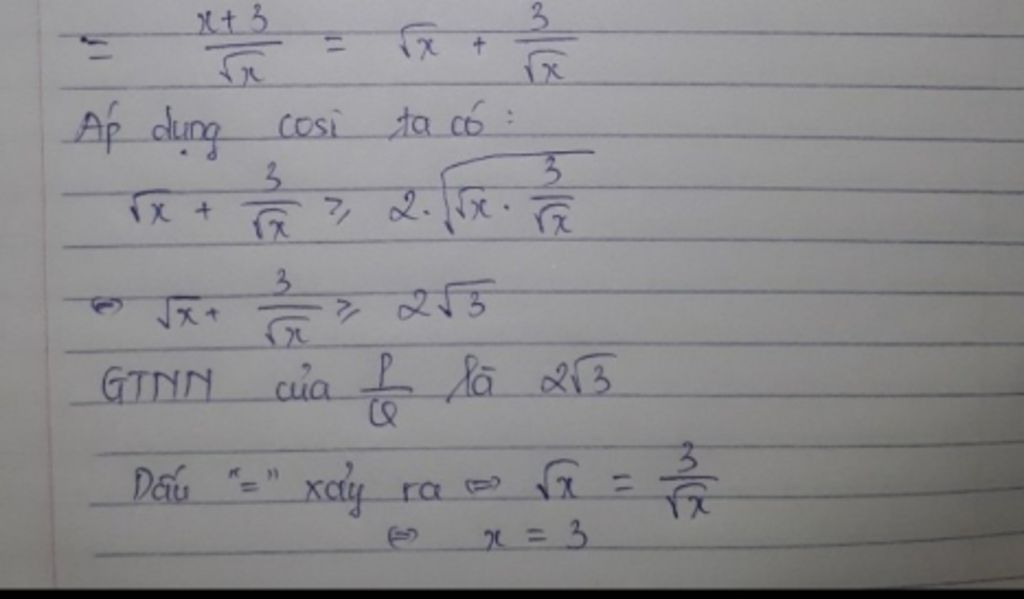 = (x+3)/√x = √x + 3/√x
Áp dụng cosi ta có :
√x + 3/√x ≥ 2.√(√x . 3/√x)
⇔ √x + 3/√x ≥ 2√3
GTNN của P/Q là 2√3
Dấu "=" xảy ra ⇔ √x = 3/√x
⇔ x = 3